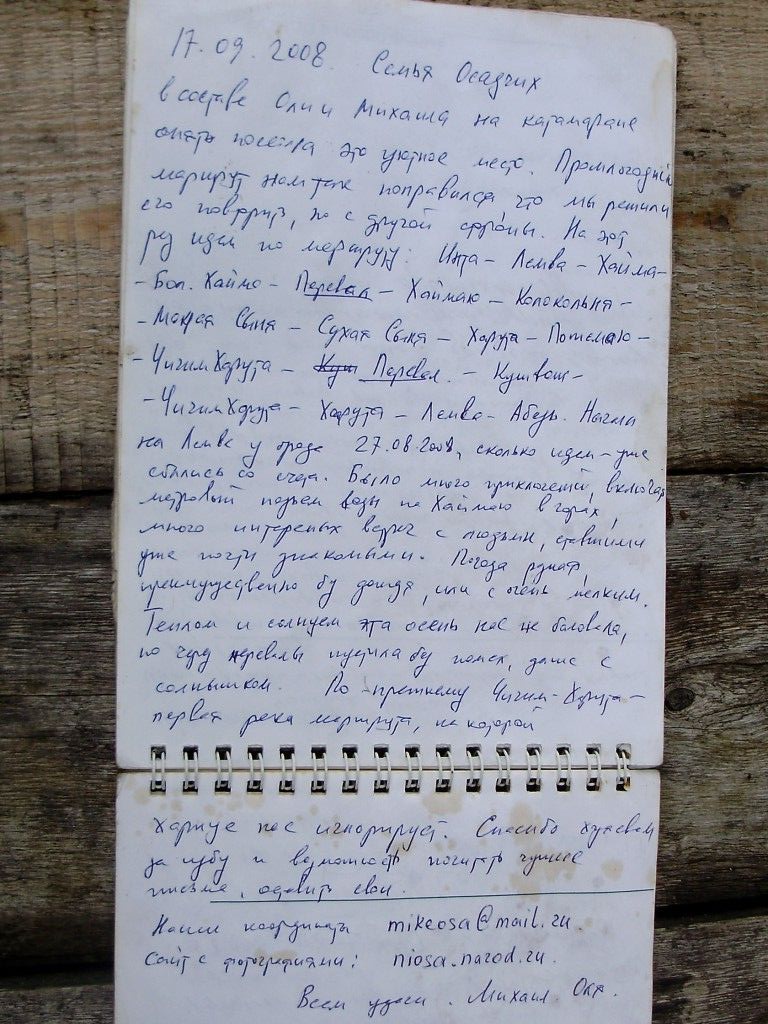 17.09.2008. Семья Осадчих
в составе Оли и Михаила на катамаране
опять посетила это уютное место. Прошлогодний
маршрут нам так понравился что мы решили
его повторить, но с другой стороны. На этот
раз идем по маршруту: Инта – Лемва – Хайма –
– Бол. Хайма – Перевал – Хаймаю – Колокольня –
– Мокрая Сыня – Сухая Сыня – Харута – Потемаю –
– ЧигимХарута – Перевал. – Кушвож –
– ЧигимХарута – Харута – Лемва – Абезь. Начали
на Лемве у брода 27.08.2008, сколько идем – уже
сбились со счета. Было много приключений, включая
метровый подъем воды на Хаймаю в горах,
много интересных встреч с людьми, ставшими
уже почти знакомыми. Погода радует,
преимущественно без дождя, или с очень мелким.
Теплом и солнцем эта осень нас не баловала,
но через перевалы пустила без помех, даже с
солнышком. По-прежнему Чигим-Харута –
первая река маршрута, на которой
Хариус нас игнорирует. Спасибо хозяевам
за избу и возможность почитать чужие
письма, оставить свои.
Наши координаты mikeosa@mail.ru.
Сайт с фотографиями: niosa.narod.ru.
Всем удачи. Михаил. Оля.